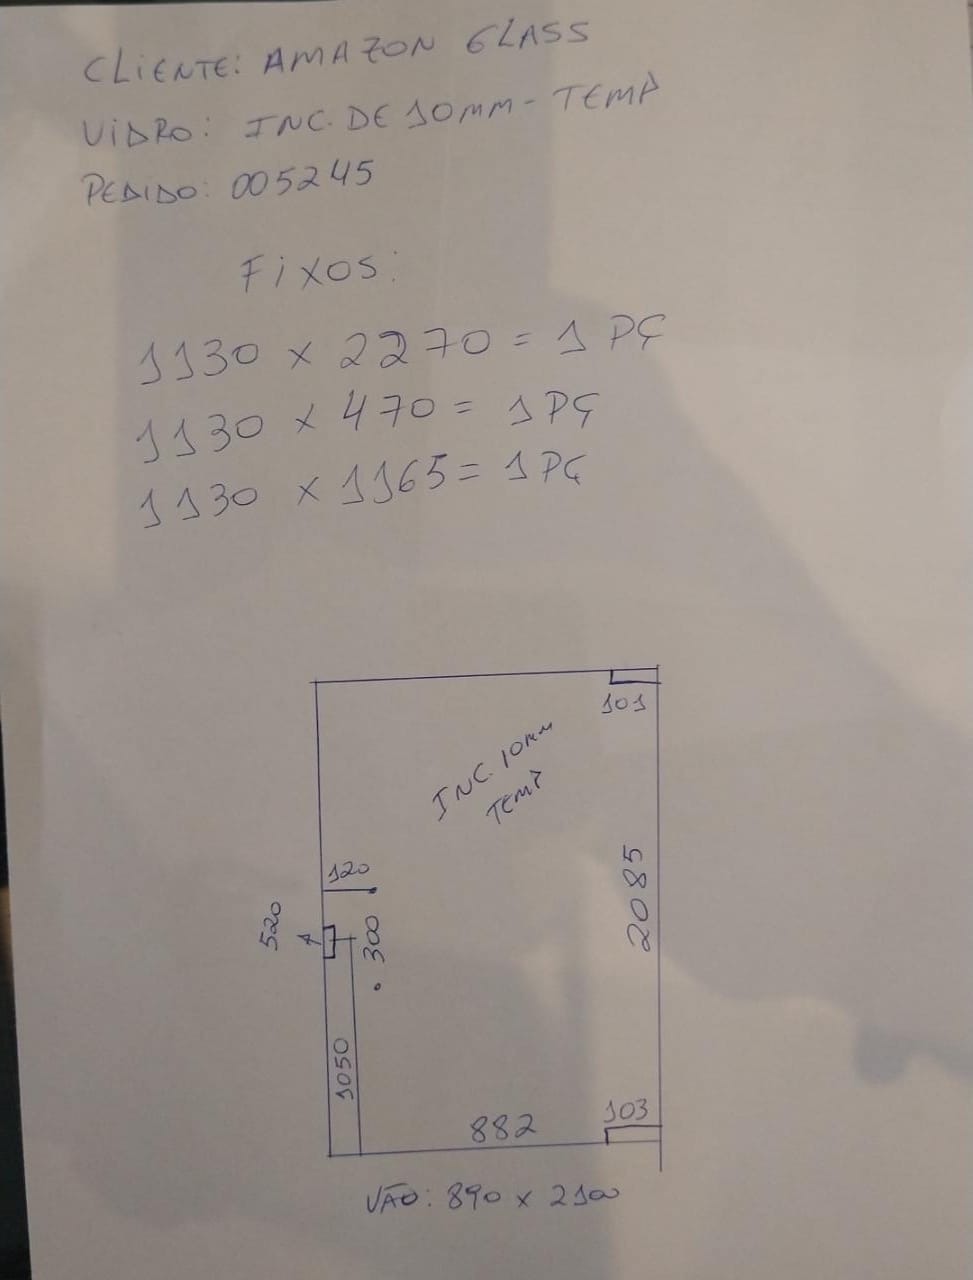 CLIENTE: AMAZON GLASS
VIDRO: INC. DE 10MM - TEMP
PEDIDO: 005245
FIXOS:
1130 x 2270 = 1 PÇ
1130 x 470 = 1 PÇ
1130 x 1165 = 1 PÇ
101
INC. 10mm
TEMP
120
2085
520
300
1050
103
882
VÃO: 890 x 2100